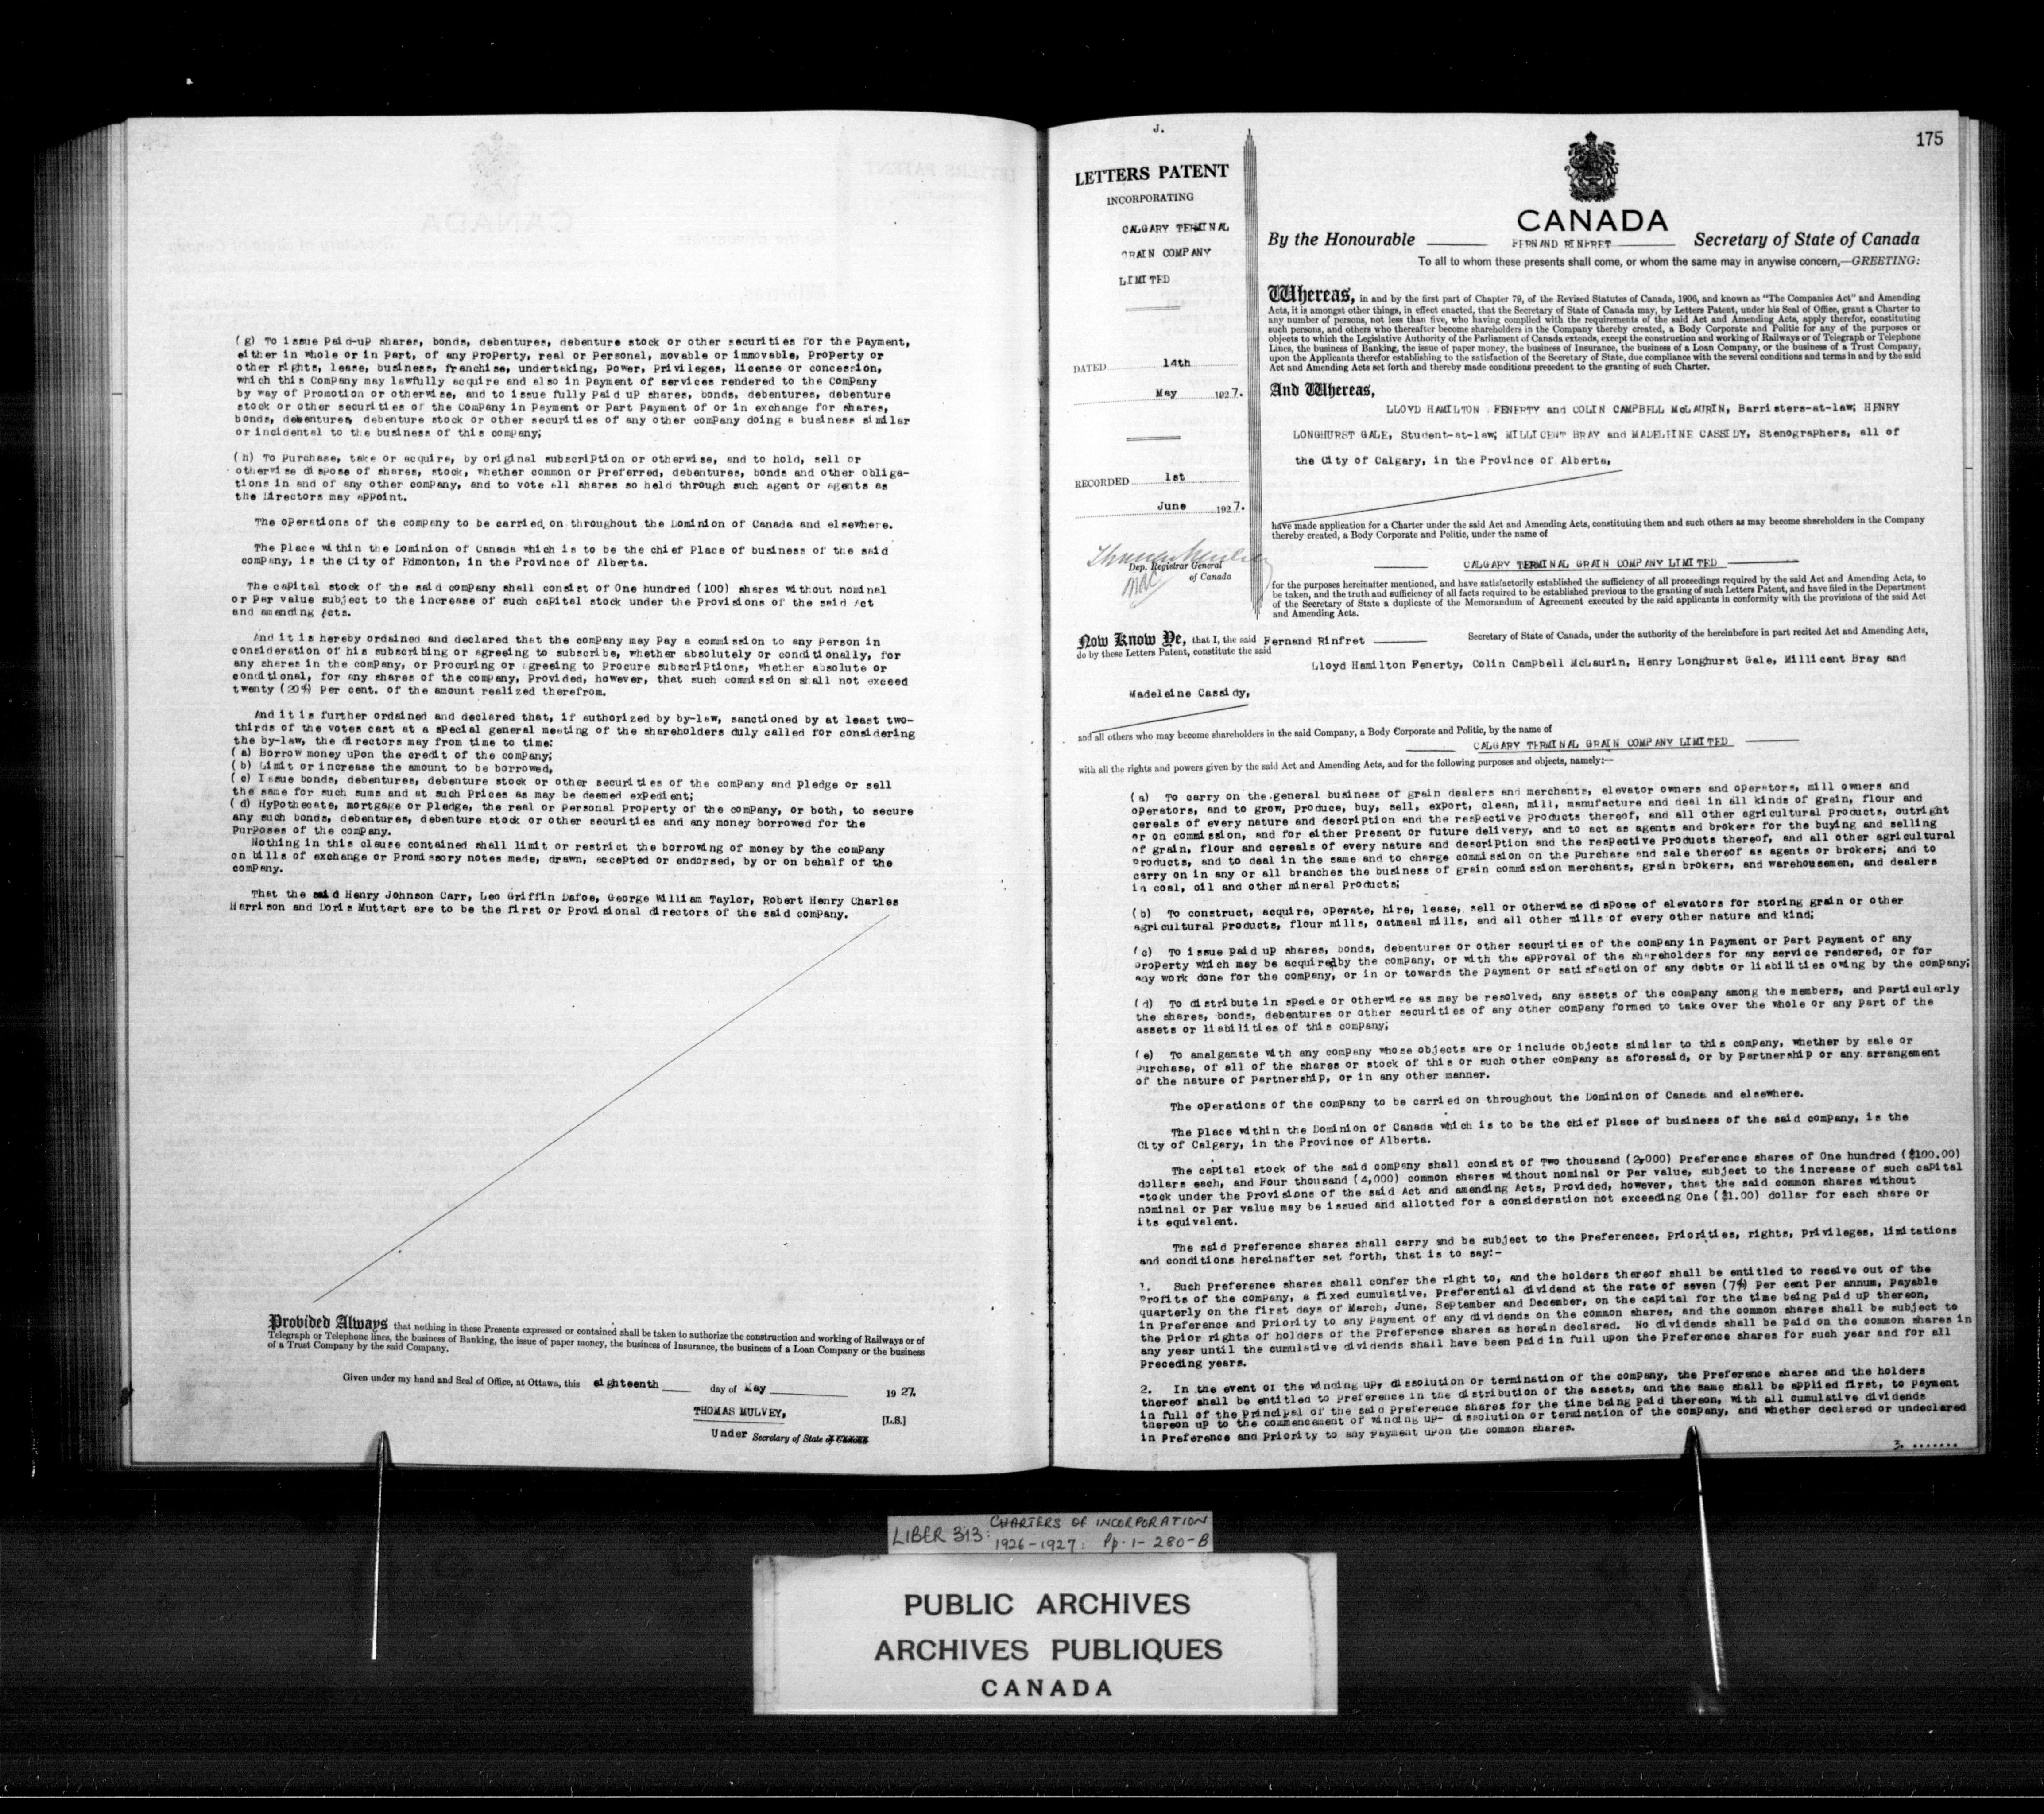 (g) To issue Paid-up shares, bonds, debentures, debenture stock or other securities for the Payment,
either in whole or in Part, of any Property, real or Personal, movable or immovable, Property or
other rights, lease, business, franchise, undertaking, Power, Privileges, license or concession,
which this Company may lawfully acquire and also in Payment of services rendered to the Company
by way of Promotion or otherwise, and to issue fully Paid up shares, bonds, debentures, debenture
stock or other securities of the Company in Payment or Part Payment of or in exchange for shares,
bonds, debentures, debenture stock or other securities of any other company doing a business similar
or incidental to the business of this company;
(h) To Purchase, take or acquire, by original subscription or otherwise, and to hold, sell or
otherwise dispose of shares, stock, whether common or Preferred, debentures, bonds and other obliga-
tions in and of any other company, and to vote all shares so held through such agent or agents as
the Directors may appoint.
The operations of the company to be carried on throughout the Dominion of Canada and elsewhere.
The Place within the Dominion of Canada which is to be the chief Place of business of the said
company, is the City of Edmonton, in the Province of Alberta.
The capital stock of the said company shall consist of One hundred (100) shares without nominal
or Par value subject to the increase of such capital stock under the Provisions of the said Act
and amending Acts.
And it is hereby ordained and declared that the company may Pay a commission to any Person in
consideration of his subscribing or agreeing to subscribe, whether absolutely or conditionally, for
any shares in the company, or Procuring or agreeing to Procure subscriptions, whether absolute or
conditional, for any shares of the company, Provided, however, that such commission shall not exceed
twenty (20%) Per cent. of the amount realized therefrom.
And it is further ordained and declared that, if authorized by by-law, sanctioned by at least two-
thirds of the votes cast at a special general meeting of the shareholders duly called for considering
the by-law, the directors may from time to time:
(a) Borrow money upon the credit of the company;
(b) Limit or increase the amount to be borrowed,
(c) Issue bonds, debentures, debenture stock or other securities of the company and Pledge or sell
the same for such sums and at such Prices as may be deemed expedient;
(d) Hypothecate, mortgage or Pledge, the real or personal Property of the company, or both, to secure
any such bonds, debentures, debenture stock or other securities and any money borrowed for the
Purposes of the company.
Nothing in this clause contained shall limit or restrict the borrowing of money by the company
on bills of exchange or Promissory notes made, drawn, accepted or endorsed, by or on behalf of the
company.
That the said Henry Johnson Carr, Leo Griffin Dafoe, George William Taylor, Robert Henry Charles
Harrison and Doris Muttart are to be the first or Provisional directors of the said company.
Provided Always that nothing in these Presents expressed or contained shall be taken to authorize the construction and working of Railways or of
Telegraph or Telephone lines, the business of Banking, the issue of paper money, the business of Insurance, the business of a Loan Company or the business
of a Trust Company by the said Company.
Given under my hand and Seal of Office, at Ottawa, this eighteenth day of May 1927.
THOMAS MULVEY, [L.S.]
Under Secretary of State of Canada
J.
LETTERS PATENT
INCORPORATING
CALGARY TERMINAL
GRAIN COMPANY
LIMITED
DATED 14th
May 1927.
RECORDED 1st
June 1927.
Thomas Mulvey
Dep. Registrar General
of Canada
175
CANADA
By the Honourable FERNAND RINFRET Secretary of State of Canada
To all to whom these presents shall come, or whom the same may in anywise concern,—GREETING:
Whereas, in and by the first part of Chapter 79, of the Revised Statutes of Canada, 1906, and known as "The Companies Act" and Amending
Acts, it is amongst other things, in effect enacted, that the Secretary of State of Canada may, by Letters Patent, under his Seal of Office, grant a Charter to
any number of persons, not less than five, who having complied with the requirements of the said Act and Amending Acts, apply therefor, constituting
such persons, and others who thereafter become shareholders in the Company thereby created, a Body Corporate and Politic for any of the purposes or
objects to which the Legislative Authority of the Parliament of Canada extends, except the construction and working of Railways or of Telegraph or Telephone
Lines, the business of Banking, the issue of paper money, the business of Insurance, the business of a Loan Company, or the business of a Trust Company,
upon the Applicants therefor establishing to the satisfaction of the Secretary of State, due compliance with the several conditions and terms in and by the said
Act and Amending Acts set forth and thereby made conditions precedent to the granting of such Charter.
And Whereas,
LLOYD HAMILTON FENERTY and COLIN CAMPBELL McLAURIN, Barristers-at-law; HENRY
LONGHURST GALE, Student-at-law; MILLICENT BRAY and MADELEINE CASSIDY, Stenographers, all of
the City of Calgary, in the Province of Alberta,
have made application for a Charter under the said Act and Amending Acts, constituting them and such others as may become shareholders in the Company
thereby created, a Body Corporate and Politic, under the name of
CALGARY TERMINAL GRAIN COMPANY LIMITED
for the purposes hereinafter mentioned, and have satisfactorily established the sufficiency of all proceedings required by the said Act and Amending Acts, to
be taken, and the truth and sufficiency of all facts required to be established previous to the granting of such Letters Patent, and have filed in the Department
of the Secretary of State a duplicate of the Memorandum of Agreement executed by the said applicants in conformity with the provisions of the said Act
and Amending Acts.
Now Know Ye, that I, the said Fernand Rinfret Secretary of State of Canada, under the authority of the hereinbefore in part recited Act and Amending Acts,
do by these Letters Patent, constitute the said
Lloyd Hamilton Fenerty, Colin Campbell McLaurin, Henry Longhurst Gale, Millicent Bray and
Madeleine Cassidy,
and all others who may become shareholders in the said Company, a Body Corporate and Politic, by the name of
CALGARY TERMINAL GRAIN COMPANY LIMITED
with all the rights and powers given by the said Act and Amending Acts, and for the following purposes and objects, namely:—
(a) To carry on the general business of grain dealers and merchants, elevator owners and operators, mill owners and
operators, and to grow, Produce, buy, sell, export, clean, mill, manufacture and deal in all kinds of grain, flour and
cereals of every nature and description and the respective Products thereof, and all other agricultural Products, outright
or on commission, and for either Present or future delivery, and to act as agents and brokers for the buying and selling
of grain, flour and cereals of every nature and description and the respective Products thereof, and all other agricultural
Products, and to deal in the same and to charge commission on the Purchase and sale thereof as agents or brokers; and to
carry on in any or all branches the business of grain commission merchants, grain brokers, and warehousemen, and dealers
in coal, oil and other mineral Products;
(b) To construct, acquire, operate, hire, lease, sell or otherwise dispose of elevators for storing grain or other
agricultural Products, flour mills, oatmeal mills, and all other mills of every other nature and kind;
(c) To issue paid up shares, bonds, debentures or other securities of the company in Payment or Part Payment of any
Property which may be acquired by the company, or with the approval of the shareholders for any service rendered, or for
any work done for the company, or in or towards the Payment or satisfaction of any debts or liabilities owing by the company;
(d) To distribute in specie or otherwise as may be resolved, any assets of the company among the members, and Particularly
the shares, bonds, debentures or other securities of any other company formed to take over the whole or any Part of the
assets or liabilities of this company;
(e) To amalgamate with any company whose objects are or include objects similar to this company, whether by sale or
Purchase, of all of the shares or stock of this or such other company as aforesaid, or by Partnership or any arrangement
of the nature of Partnership, or in any other manner.
The operations of the company to be carried on throughout the Dominion of Canada and elsewhere.
The Place within the Dominion of Canada which is to be the chief Place of business of the said company, is the
City of Calgary, in the Province of Alberta.
The capital stock of the said company shall consist of Two thousand (2,000) Preference shares of One hundred ($100.00)
dollars each, and Four thousand (4,000) common shares without nominal or Par value, subject to the increase of such capital
stock under the Provisions of the said Act and amending Acts, Provided, however, that the said common shares without
nominal or Par value may be issued and allotted for a consideration not exceeding One ($1.00) dollar for each share or
its equivalent.
The said Preference shares shall carry and be subject to the Preferences, Priorities, rights, Privileges, limitations
and conditions hereinafter set forth, that is to say:-
1. Such Preference shares shall confer the right to, and the holders thereof shall be entitled to receive out of the
Profits of the company, a fixed cumulative, Preferential dividend at the rate of seven (7%) Per cent Per annum, Payable
quarterly on the first days of March, June, September and December, on the capital for the time being Paid up thereon,
in Preference and Priority to any Payment of any dividends on the common shares, and the common shares shall be subject to
the Prior rights of holders of the Preference shares as herein declared. No dividends shall be Paid on the common shares in
any year until the cumulative dividends shall have been Paid in full upon the Preference shares for such year and for all
Preceding years.
2. In the event of the winding up, dissolution or termination of the company, the Preference shares and the holders
thereof shall be entitled to Preference in the distribution of the assets, and the same shall be applied first, to Payment
in full of the Principal of the said Preference shares for the time being Paid thereon, with all cumulative dividends
thereon up to the commencement of winding up- dissolution or termination of the company, and whether declared or undeclared
in Preference and Priority to any payment upon the common shares.
3. .......
LIBER 313: CHARTERS OF INCORPORATION
1926-1927: Pp. 1-280-B
PUBLIC ARCHIVES
ARCHIVES PUBLIQUES
CANADA